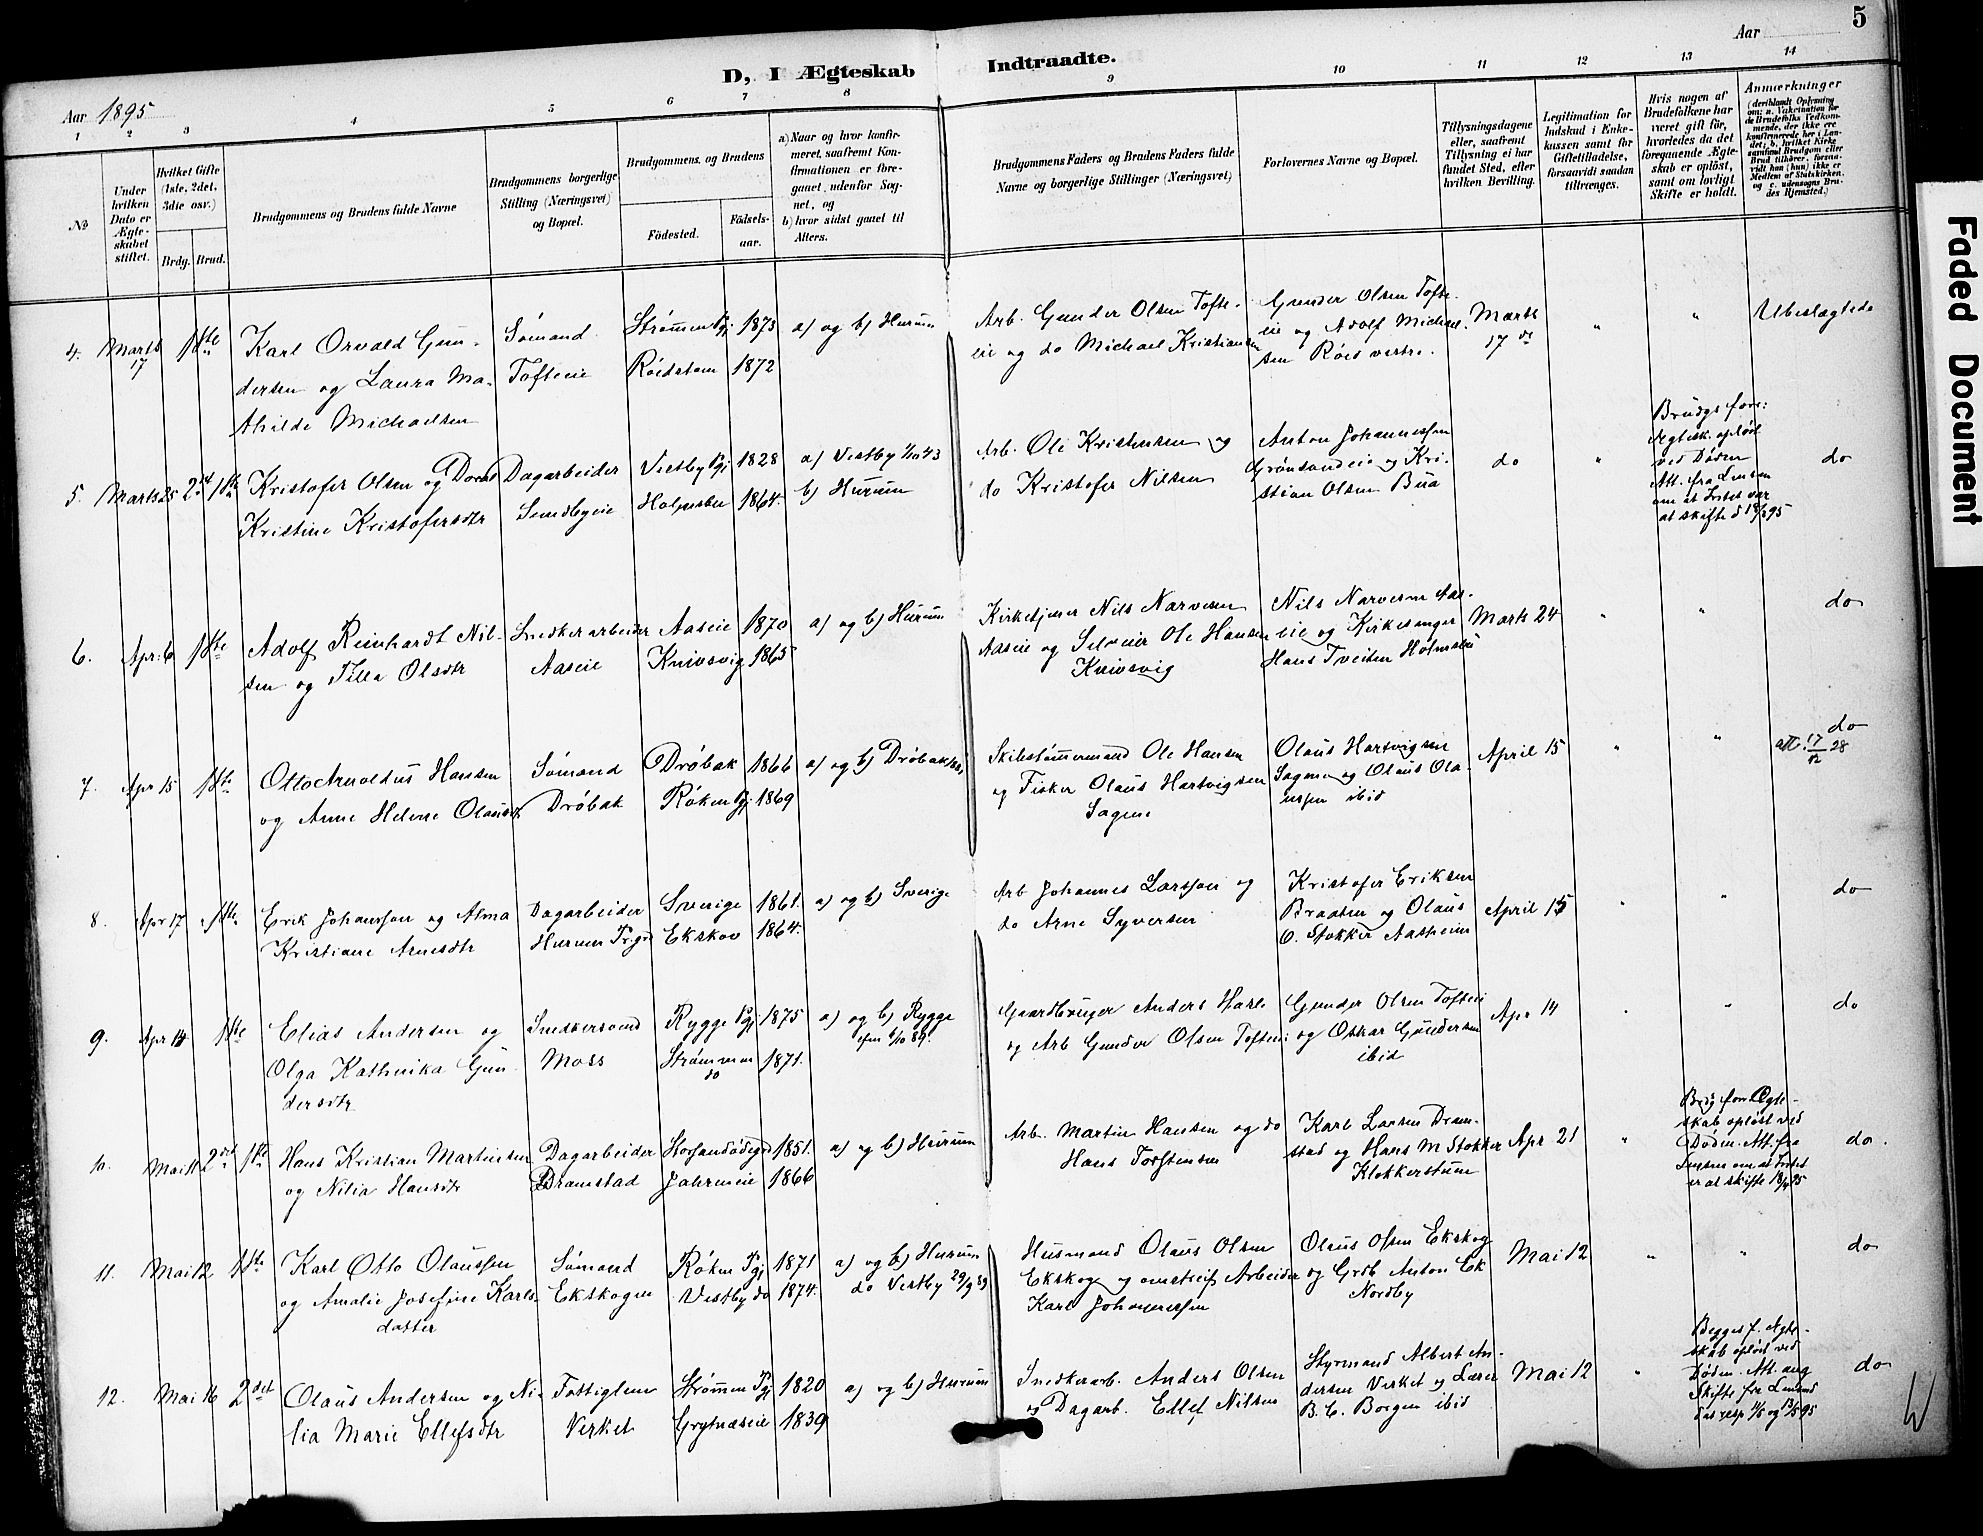 5
Aar
D, I Ægteskab Indtraadte.
Aar 1895
1 2 3 4 5 6 7 8 9 10 11 12 13 14
No
Under
hvilken
Dato er
Ægte-
skabet
stiftet.
Hvilket Gifte
(1ste, 2det,
3die osv.)
Brdg. Brud.
Brudgommens og Brudens fulde Navne
Brudgommens borgerlige
Stilling (Næringsvei)
og Bopæl.
Brudgommens, og Brudens
Födested.
Födsels-
aar.
a) Naar og hvor konfir-
meret, saafremt Kon-
firmationen er fore-
gaaet, udenfor Sog-
net, og
b) hvor sidst gaaet til
Alters.
Brudgommens Faders og Brudens Faders fulde
Navne og borgerlige Stillinger (Næringsvei)
Forlovernes Navne og Bopæl.
Tillysningsdagene
eller, saafremt
Tillysning ei har
fundet Sted, efter
hvilken Bevilling.
Legitimation for
Indskud i Enke-
kassen samt for
Giftetilladelse,
forsaavidt saadan
tiltrænges.
Hvis nogen af
Brudefolkene har
været gift för,
hvorledes da det
foregaaende Ægte-
skab er oplöst,
samt om lovligt
Skifte er holdt.
Anmærkninger
(deriblandt Oplysning
om: a. Vakcination for
de Brudefolks Vedkom-
mende, der ikke ere
konfirmerede her i Lan-
det; b. hvilket Kirke-
samfund Brudgom eller
Brud tilhörer, forsaa-
vidt han (hun) ikke er
Medlem af Statskirken,
og c. udensogns Bru-
des Hjemsted.)
Faded Document
4. Marts 17 1ste Karl Orvald Gun-
dersen og Laura Ma-
thilde Michaelsen
Sömand
Tofteeie
Strömmen Pgj 1873
Röedstøm 1872
a) og b) Hurum
Arb. Gunder Olsen Tofte-
eie og do Michael Kristiansen
Gunder Olsen Tofte-
eie og Adolf Michael-
sen Röed vestre.
Marts
17 de
" "
Ubeslægtede
5. Marts 25 2det 1ste Kristofer Olsen og Dorth
Kristine Kristofersdtr
Dagarbeider
Sundbyeie
Vestby Pgj 1828
Holmsbu 1864.
a) Vestby 1/10 43
b) Hurum
Arb. Ole Kristensen og
do Kristofer Nilsen
Anton Johannessen
Grönsandeie og Kri-
stian Olsen Bua
do
"
Brudgs fore:
Ægtesk. oplöst
ved Döden
Att. fra Lensm
om at Intet var
at skifte d 18/3 95
do
6. Apr. 6 1ste Adolf Reinhardt Nil-
sen og Tilla Olsdtr
Snedkerarbeider
Aaseie
Aaseie 1870
Knivsvig 1865
a) og b) Hurum
Kirketjener Nils Narvesen
Aaseie og Selveier Ole Hansen
Knivsvig
Nils Narvesen Aas-
eie og Kirkesanger
Hans Tveiten Holmsbu
Marts 24
" "
do
7. Apr 15 1ste Otto Arnoldus Hansen
og Anne Helene Olausdtr
Sömand
Dröbak
Dröbak 1866
Röken Pgj 1869
a) og b) Dröbak
Skibstömmermand Ole Hansen
og Fisker Olaus Hartvigsen
Sagene
Olaus Hartvigsen
Sagene og Olaus Ola-
ussen ibid
April 15
" "
do
att. 17/12 28
8. Apr 17 1ste Erik Johanssen og Alma
Kristiane Arnesdtr
Dagarbeider
Hurum Prgd
Sverige 1861.
Ekskov 1864.
a) og b) Sverige
Arb Johannes Larsson og
do Arne Syversen
Kristofer Eriksen
Braaten og Olaus
O. Stokker Aasheim
April 15
" "
do
9. Apr 14 1ste Elias Andersen og
Olga Kathinka Gun-
dersdtr
Snedkersvend
Moss
Rygge Pgj 1875
Strömmen
do 1871.
a) og b) Rygge
efter 6/10 89.
Gaardbruger Anders Hasle
og Arb Gunder Olsen Tofteeie
Gunder Olsen Tofteeie
og Oskar Gundersen
ibid
Apr 14
" "
do
10. Mai 11 2det 1ste Hans Kristian Martinsen
og Nilia Hansdtr
Dagarbeider
Dramstad
Storsandödegd 1851.
Jahrmeie 1866
a) og b) Hurum
Arb. Martin Hansen og do
Hans Torstensen
Karl Larsen Dram-
stad og Hans M Stokker
Klokkerstuen
Apr 21
"
Brdg forr Ægte-
skab oplöst ved
Döden. Att. fra
Lensm om at Intet
er at skifte 18/4 95
do.
11. Mai 12 1ste Karl Otto Olaussen
og Amalie Josefine Karls-
datter
Sömand
Ekskogen
Röken Pgj 1871
Vestby do 1874.
a) og b) Hurum
do Vestby 29/9 89
Husmand Olaus Olsen
Ekskogen og omstreif Arbeider
Karl Johannessen
Olaus Olsen Ekskog
og Grdb Anton Ek
Nordby
Mai 12
" "
do
12. Mai 16 2det Olaus Andersen og Ni-
lia Marie Ellefsdtr
Fattiglem
Verket
Strömmen Pgj 1820
Grytnæseie 1839
a) og b) Hurum
Snedkerarb. Anders Olsen
og Dagarb. Ellef Nilsen
Styrmand Albert An-
dersen Verket og Lærer
B. C. Borgen ibid
Mai 12
"
Begges f. Ægte-
skab oplöst ved
Döden. Att. ang
Skifte fra Lensmd
og 13/5 95
do